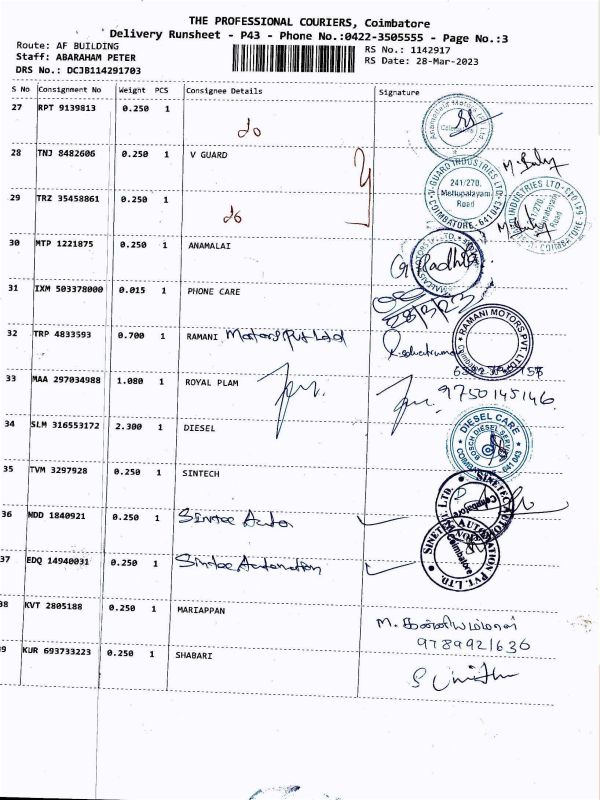 THE PROFESSIONAL COURIERS, Coimbatore
Delivery Runsheet - P43 - Phone No.:0422-3505555 - Page No.:3
Route: AF BUILDING
Staff: ABARAHAM PETER
DRS No.: DCJB114291703
RS No.: 1142917
RS Date: 28-Mar-2023
S No Consignment No Weight PCS Consignee Details Signature
27 RPT 9139813 0.250 1 do
28 TNJ 8482606 0.250 1 V GUARD
V-GUARD INDUSTRIES LTD
241/270,
Mettupalayam
Road
COIMBATORE-641 043
29 TRZ 35458861 0.250 1 do
30 MTP 1221875 0.250 1 ANAMALAI
G. Radhika
31 IXM 503378000 0.015 1 PHONE CARE
28/3/23
32 TRP 4833593 0.700 1 RAMANI Motors Pvt Ltd
RAMANI MOTORS PVT. LTD.
33 MAA 297034988 1.080 1 ROYAL PLAM
9750145146.
34 SLM 316553172 2.300 1 DIESEL
DIESEL CARE
BOSCH DIESEL SERVICE
COIMBATORE-641 043
35 TVM 3297928 0.250 1 SINTECH
36 NDD 1840921 0.250 1 Sintec Auto
37 EDQ 14940031 0.250 1 Sintec Automation
SINETEC AUTOMATION PVT. LTD.
Coimbatore
38 KVT 2805188 0.250 1 MARIAPPAN
9789921636
39 KUR 693733223 0.250 1 SHABARI